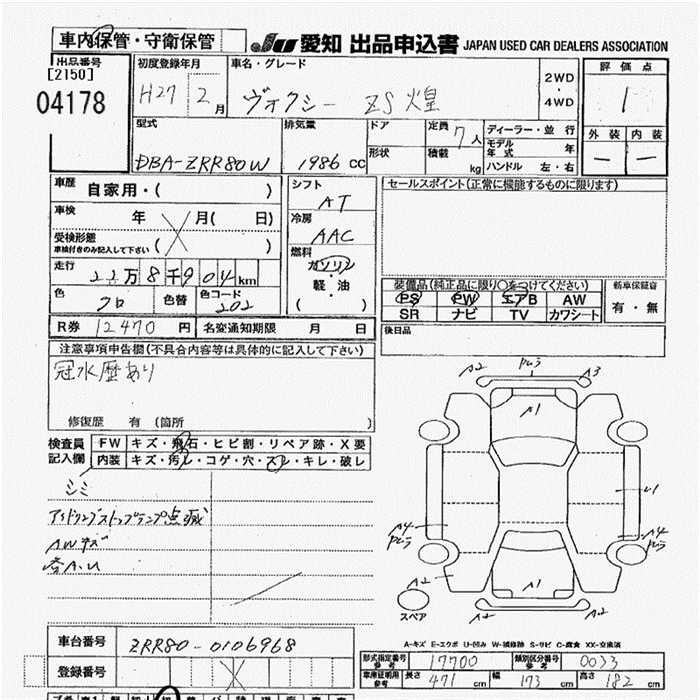 車内保管・守衛保管
JU 愛知 出品申込書 JAPAN USED CAR DEALERS ASSOCIATION
出品番号
[2150]
04178
初度登録年月
H27 2月
車名・グレード
ヴォクシー ZS 煌
2WD
・
4WD
評価点
1
外装 内装
型式
DBA-ZRR80W
排気量
1986 CC
ドア
形状
定員 7人
積載 kg
ディーラー・並行
モデル年式 年
ハンドル 左・右
車歴 自家用・( )
車検 年 月( 日)
受検形態
車検付きのみ記入して下さい ( )
走行
22万8千904km
色 クロ
色替
色コード 202
R券 12470円
名変通知期限 月 日
シフト
AT
冷房
AAC
燃料
ガソリン
軽・油
( )
セールスポイント(正常に機能するものに限ります)
装備品(純正品に限り○をつけてください)
PS PW エアB AW
SR ナビ TV カワシート
新車保証書
有・無
後日品
注意事項申告欄(不具合内容等は具体的に記入して下さい)
冠水歴あり
修復歴 有 (箇所 )
検査員
記入欄
FW キズ・飛石・ヒビ割・リペア跡・X要
内装 キズ・汚レ・コゲ・穴・スレ・キレ・破レ
シミ
アイドリングストップランプ点滅
AWキズ
各A.U
A2 A3
A1
U1
A4 A4
A2 A1
A2 A2
スペア
A-キズ E-エクボ U-凹み W-補修跡 S-サビ C-腐食 XX-交換済
車台番号 ZRR80-0106968
登録番号
形式指定番号
参考
17700
類別区分番号
参考
0033
車庫証明用
参考
長さ 471 cm 幅 173 cm 高さ 182 cm